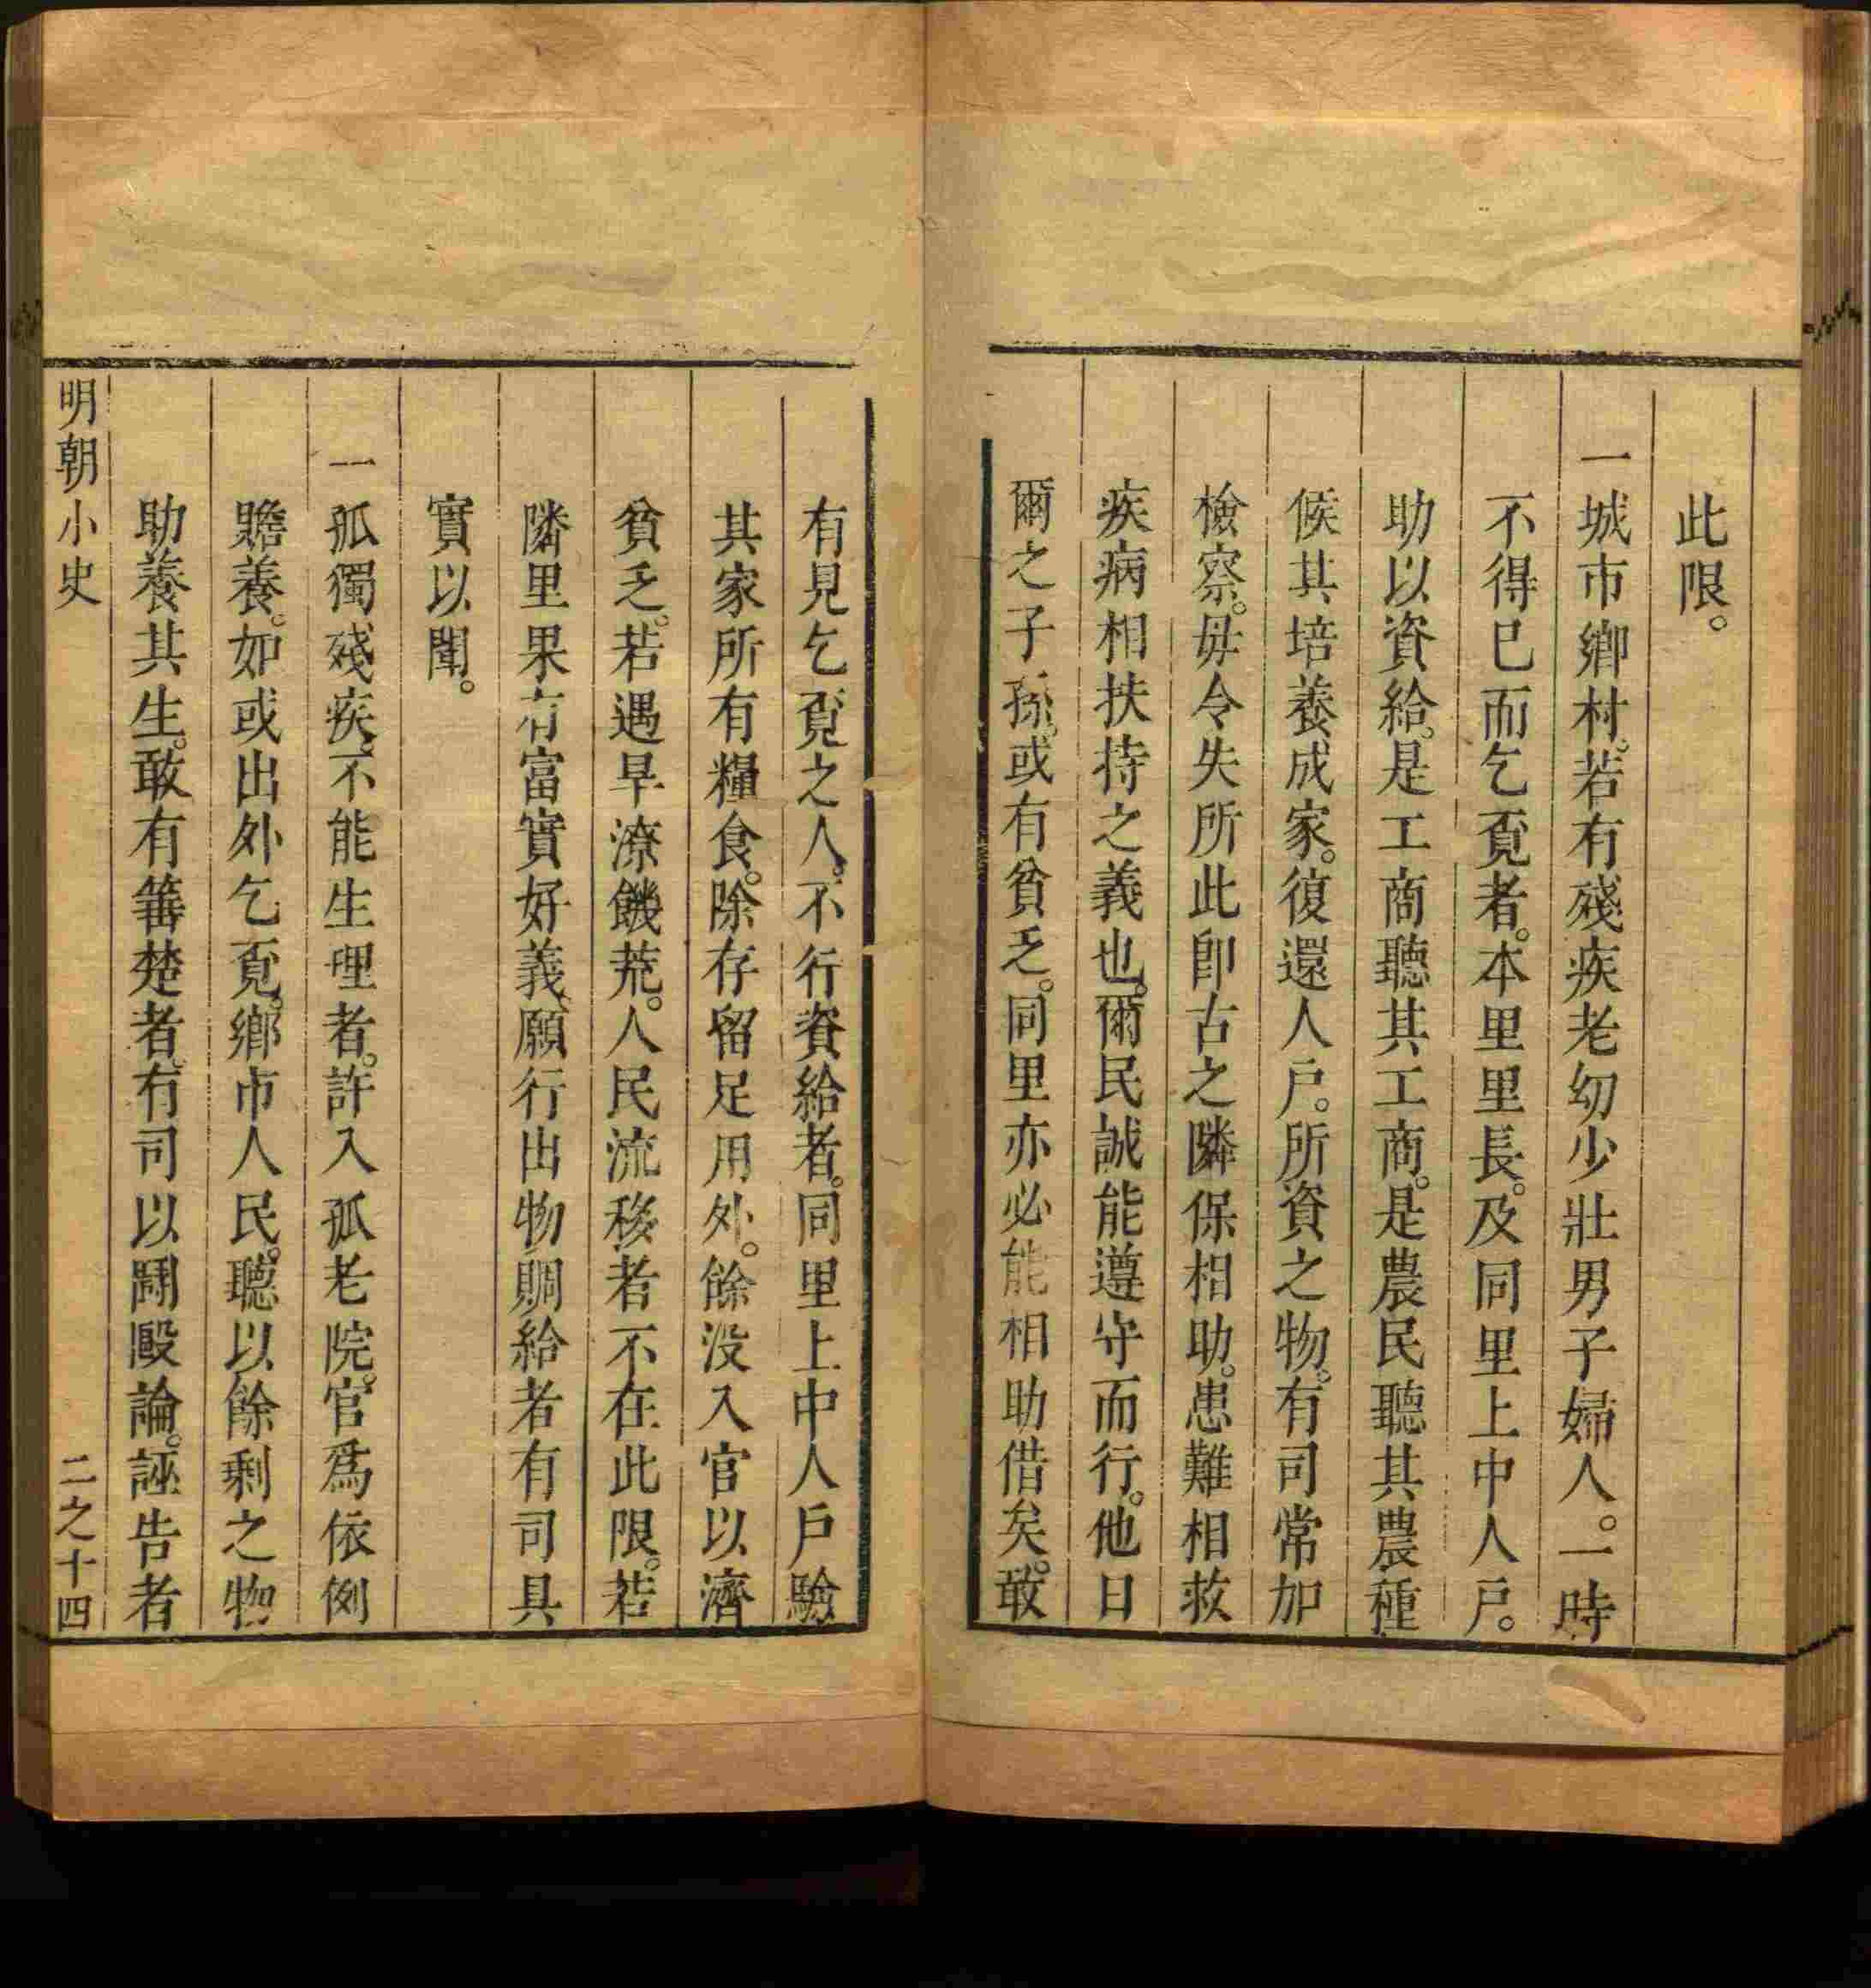 此限。
一城市鄉村。若有殘疾老幼少壯男子婦人。一時
不得已而乞覔者。本里里長。及同里上中人戶。
助以資給。是工商聽其工商。是農民聽其農種
候其培養成家。復還人戶。所資之物。有司常加
檢察。毋令失所此卽古之隣保相助。患難相救
疾病相扶持之義也。爾民誠能遵守而行。他日
爾之子孫。或有貧乏。同里亦必能相助借矣。敢
有見乞覔之人。不行資給者。同里上中人戶驗
其家所有糧食。除存留足用外。餘沒入官以濟
貧乏。若遇旱潦饑荒。人民流移者不在此限。若
隣里果有富實好義。願行出物賙給者有司具
實以聞。
一孤獨殘疾。不能生理者。許入孤老院。官爲依例
贍養。如或出外乞覔。鄉市人民。聽以餘剩之物
助養其生。敢有箠楚者。有司以鬭毆論。誣告者
明朝小史 二之十四